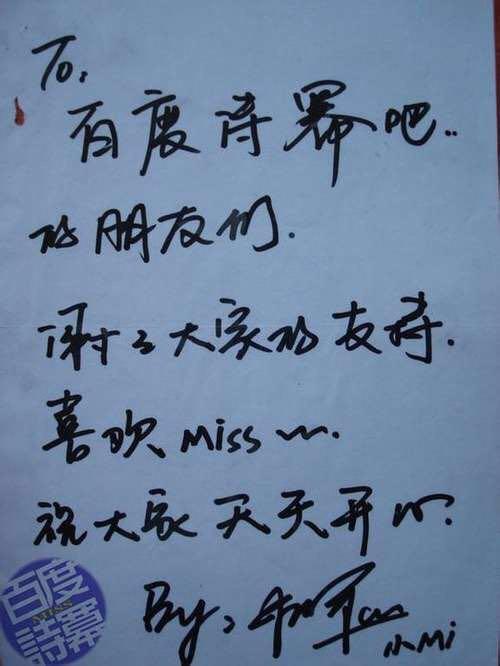 To:
百度诗幂吧..
的朋友们.
谢々大家的支持.
喜欢 Miss ~.
祝大家天天开心.
By:
小Mi
百度
MISS
詩